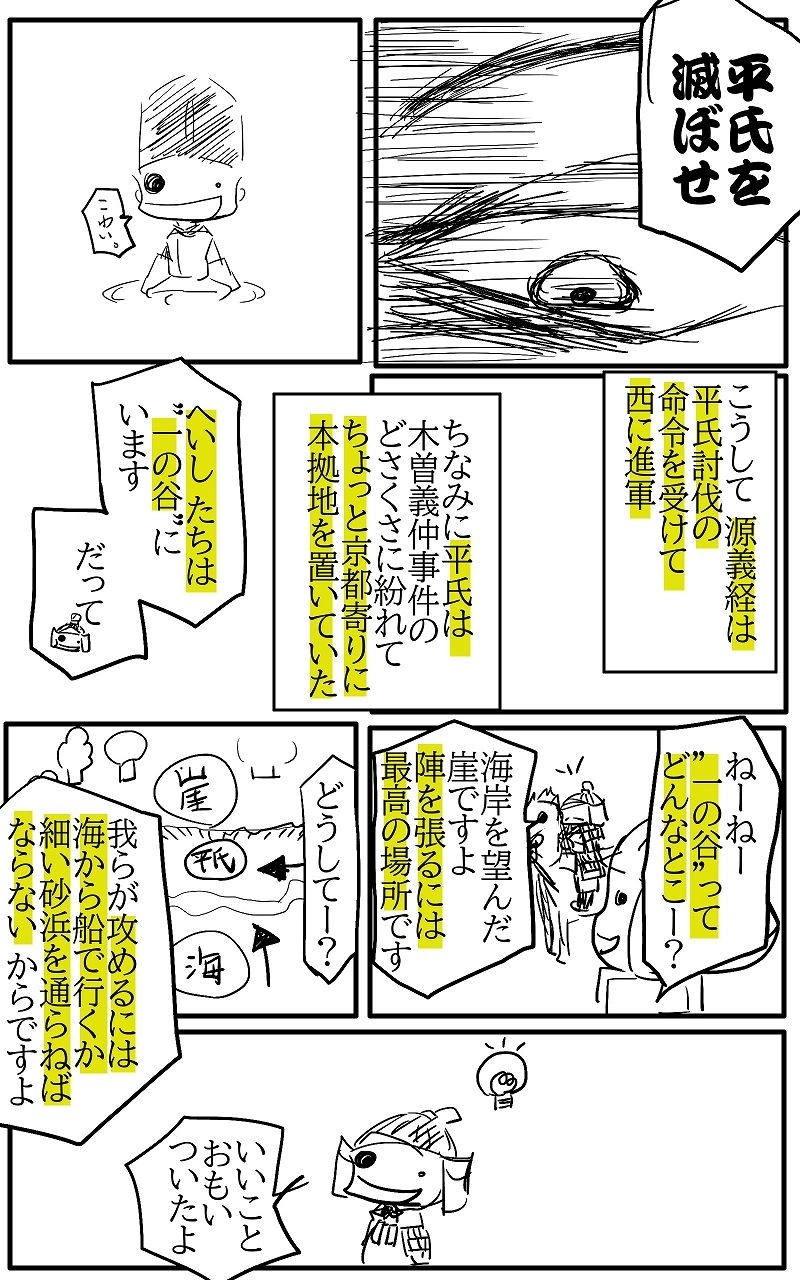 平氏を
滅ぼせ
こわい。
こうして 源義経は
平氏討伐の
命令を受けて
西に進軍
ちなみに平氏は
木曽義仲事件の
どさくさに紛れて
ちょっと京都寄りに
本拠地を置いていた
へいしたちは
”一の谷”に
います
だって
ねーねー
”一の谷”って
どんなとこー？
海岸を望んだ
崖ですよ
陣を張るには
最高の場所です
どうしてー？
崖
平氏
海
我らが攻めるには
海から船で行くか
細い砂浜を通らねば
ならない からですよ
いいこと
おもい
ついたよ